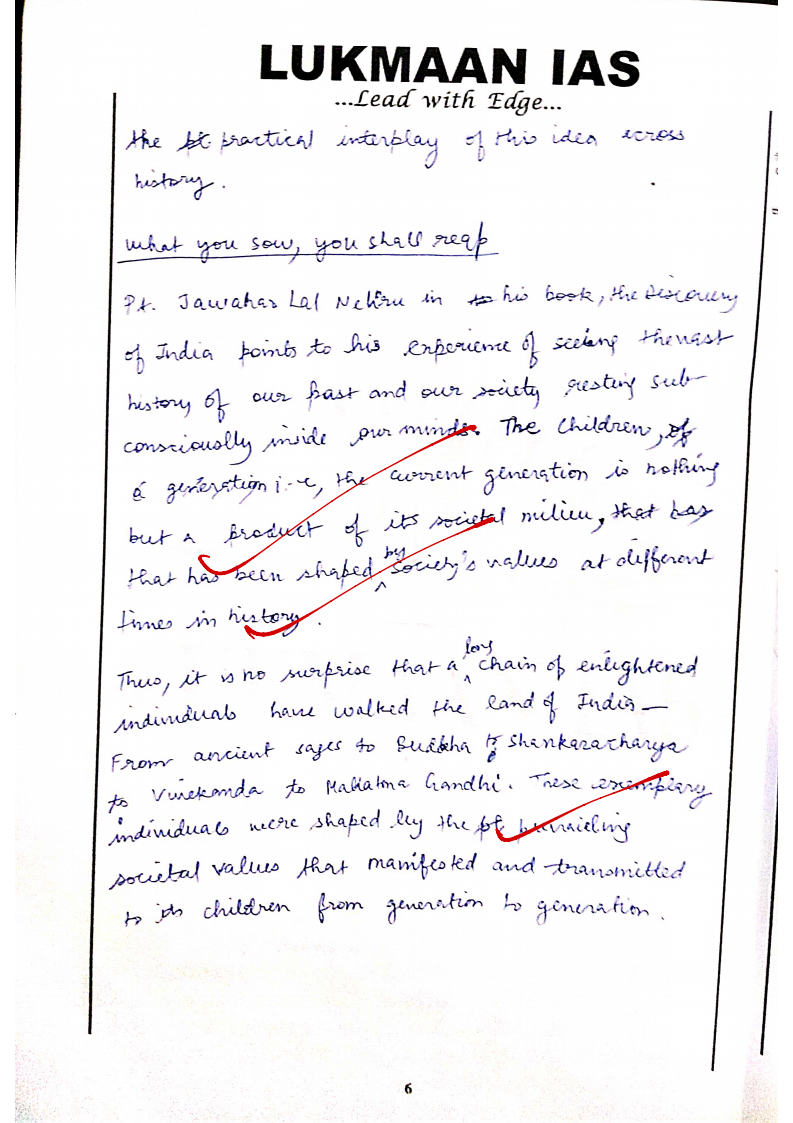 LUKMAAN IAS
...Lead with Edge...
the practical interplay of this idea across
history.
What you sow, you shall reap
Pt. Jawahar Lal Nehru in his book, the Discovery
of India points to his experience of seeing the vast
history of our past and our society resting sub-
consciously inside our minds. The children, of
a generation i.e, the current generation is nothing
but a product of its societal milieu, that has
that has been shaped by society's values at different
times in history.
Thus, it is no surprise that a long chain of enlightened
individuals have walked the land of India —
From ancient sages to Buddha to Shankaracharya
to Vivekanda to Mahatma Gandhi. These exemplary
individuals were shaped by the
societal values that manifested and transmitted
to its children from generation to generation.
6